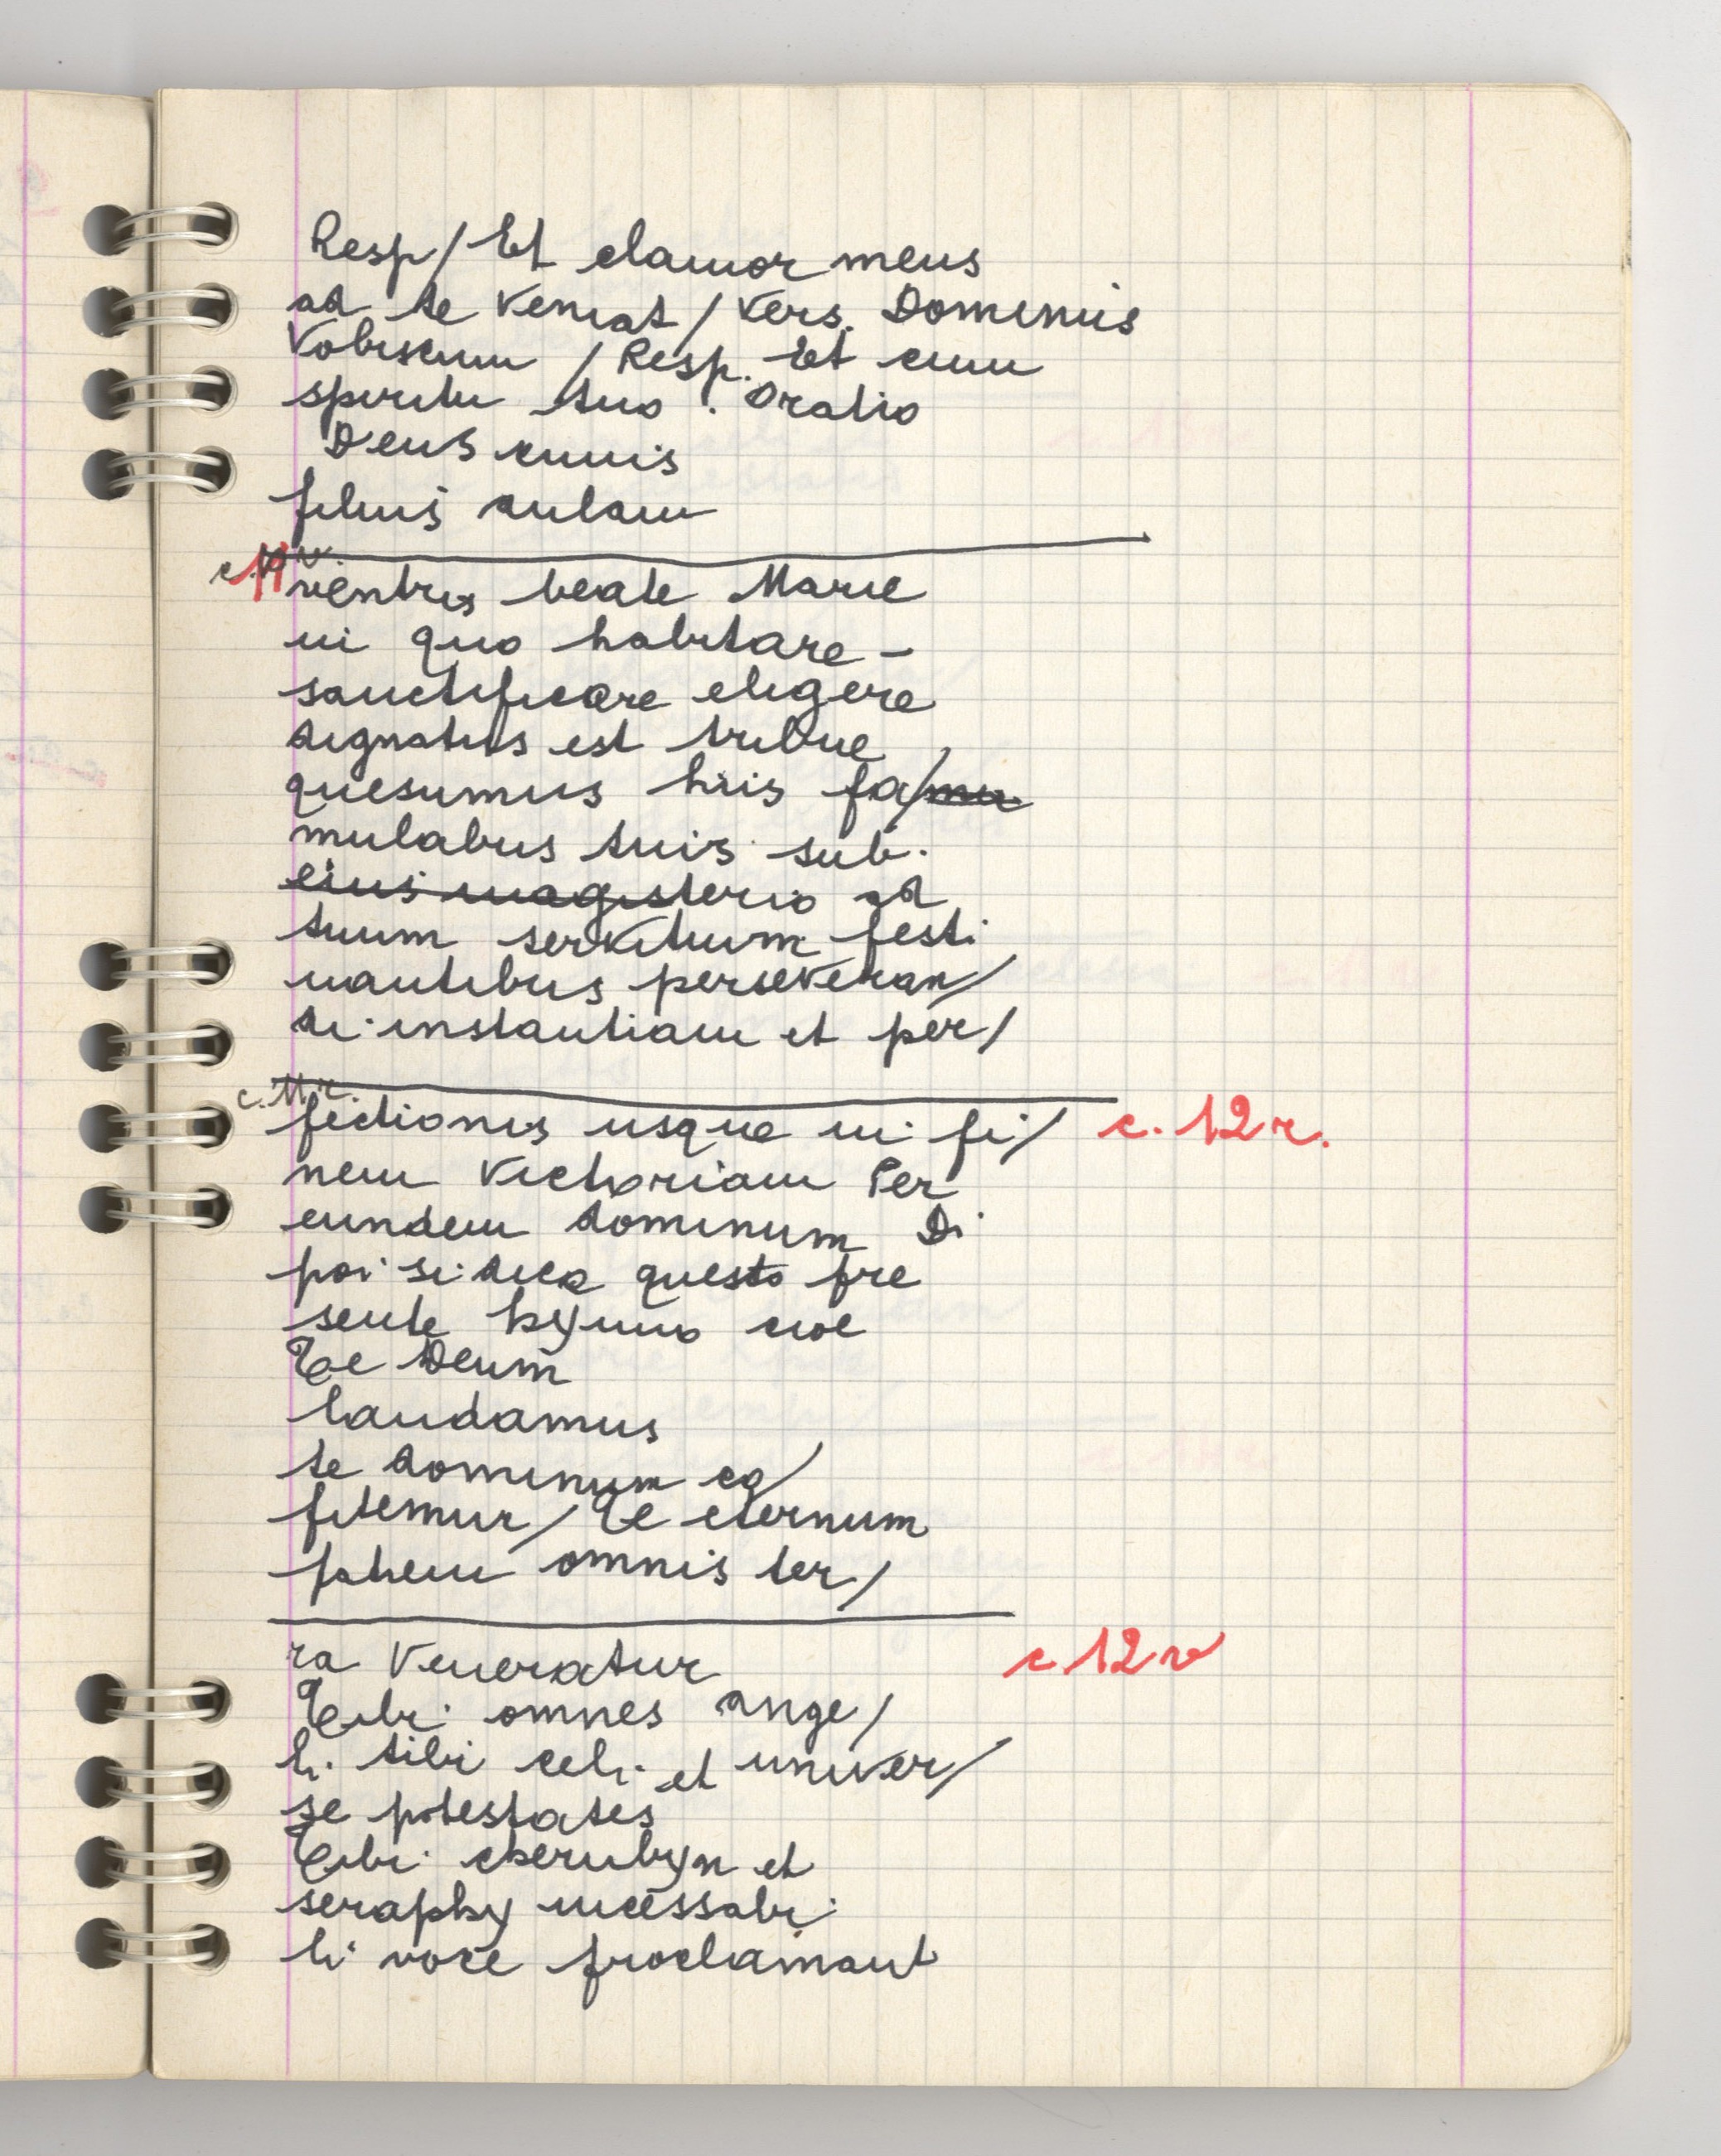 Resp/ Et clamor meus
ad te veniat / Vers. Dominus
Vobiscum / Resp. Et cum
spiritu tuo. Oratio
Deus cuius
filius aulam
c. 11 v.
ventris beate Marie
in quo habitare -
sanctificare eligere
dignatus est tribue
quesumus hiis fa/mu
mulabus tuis sub.
eius magisterio ad
tuum servitium festi
nantibus perseveran/
di instantiam et per/
c. 11. r.
fectionis usque in fi/ c. 12 r.
nem victoriam Per
eundem dominum Di
poi si dica questo pre
sente hymno cioe
Te Deum
laudamus
te dominum co/
fitemur/ Te eternum
patrem omnis ter/
ra veneratur c 12 v
Tibi omnes ange/
li tibi celi et univer/
se potestates
Tibi cherubyn et
seraphy incessabi
li voce proclamant